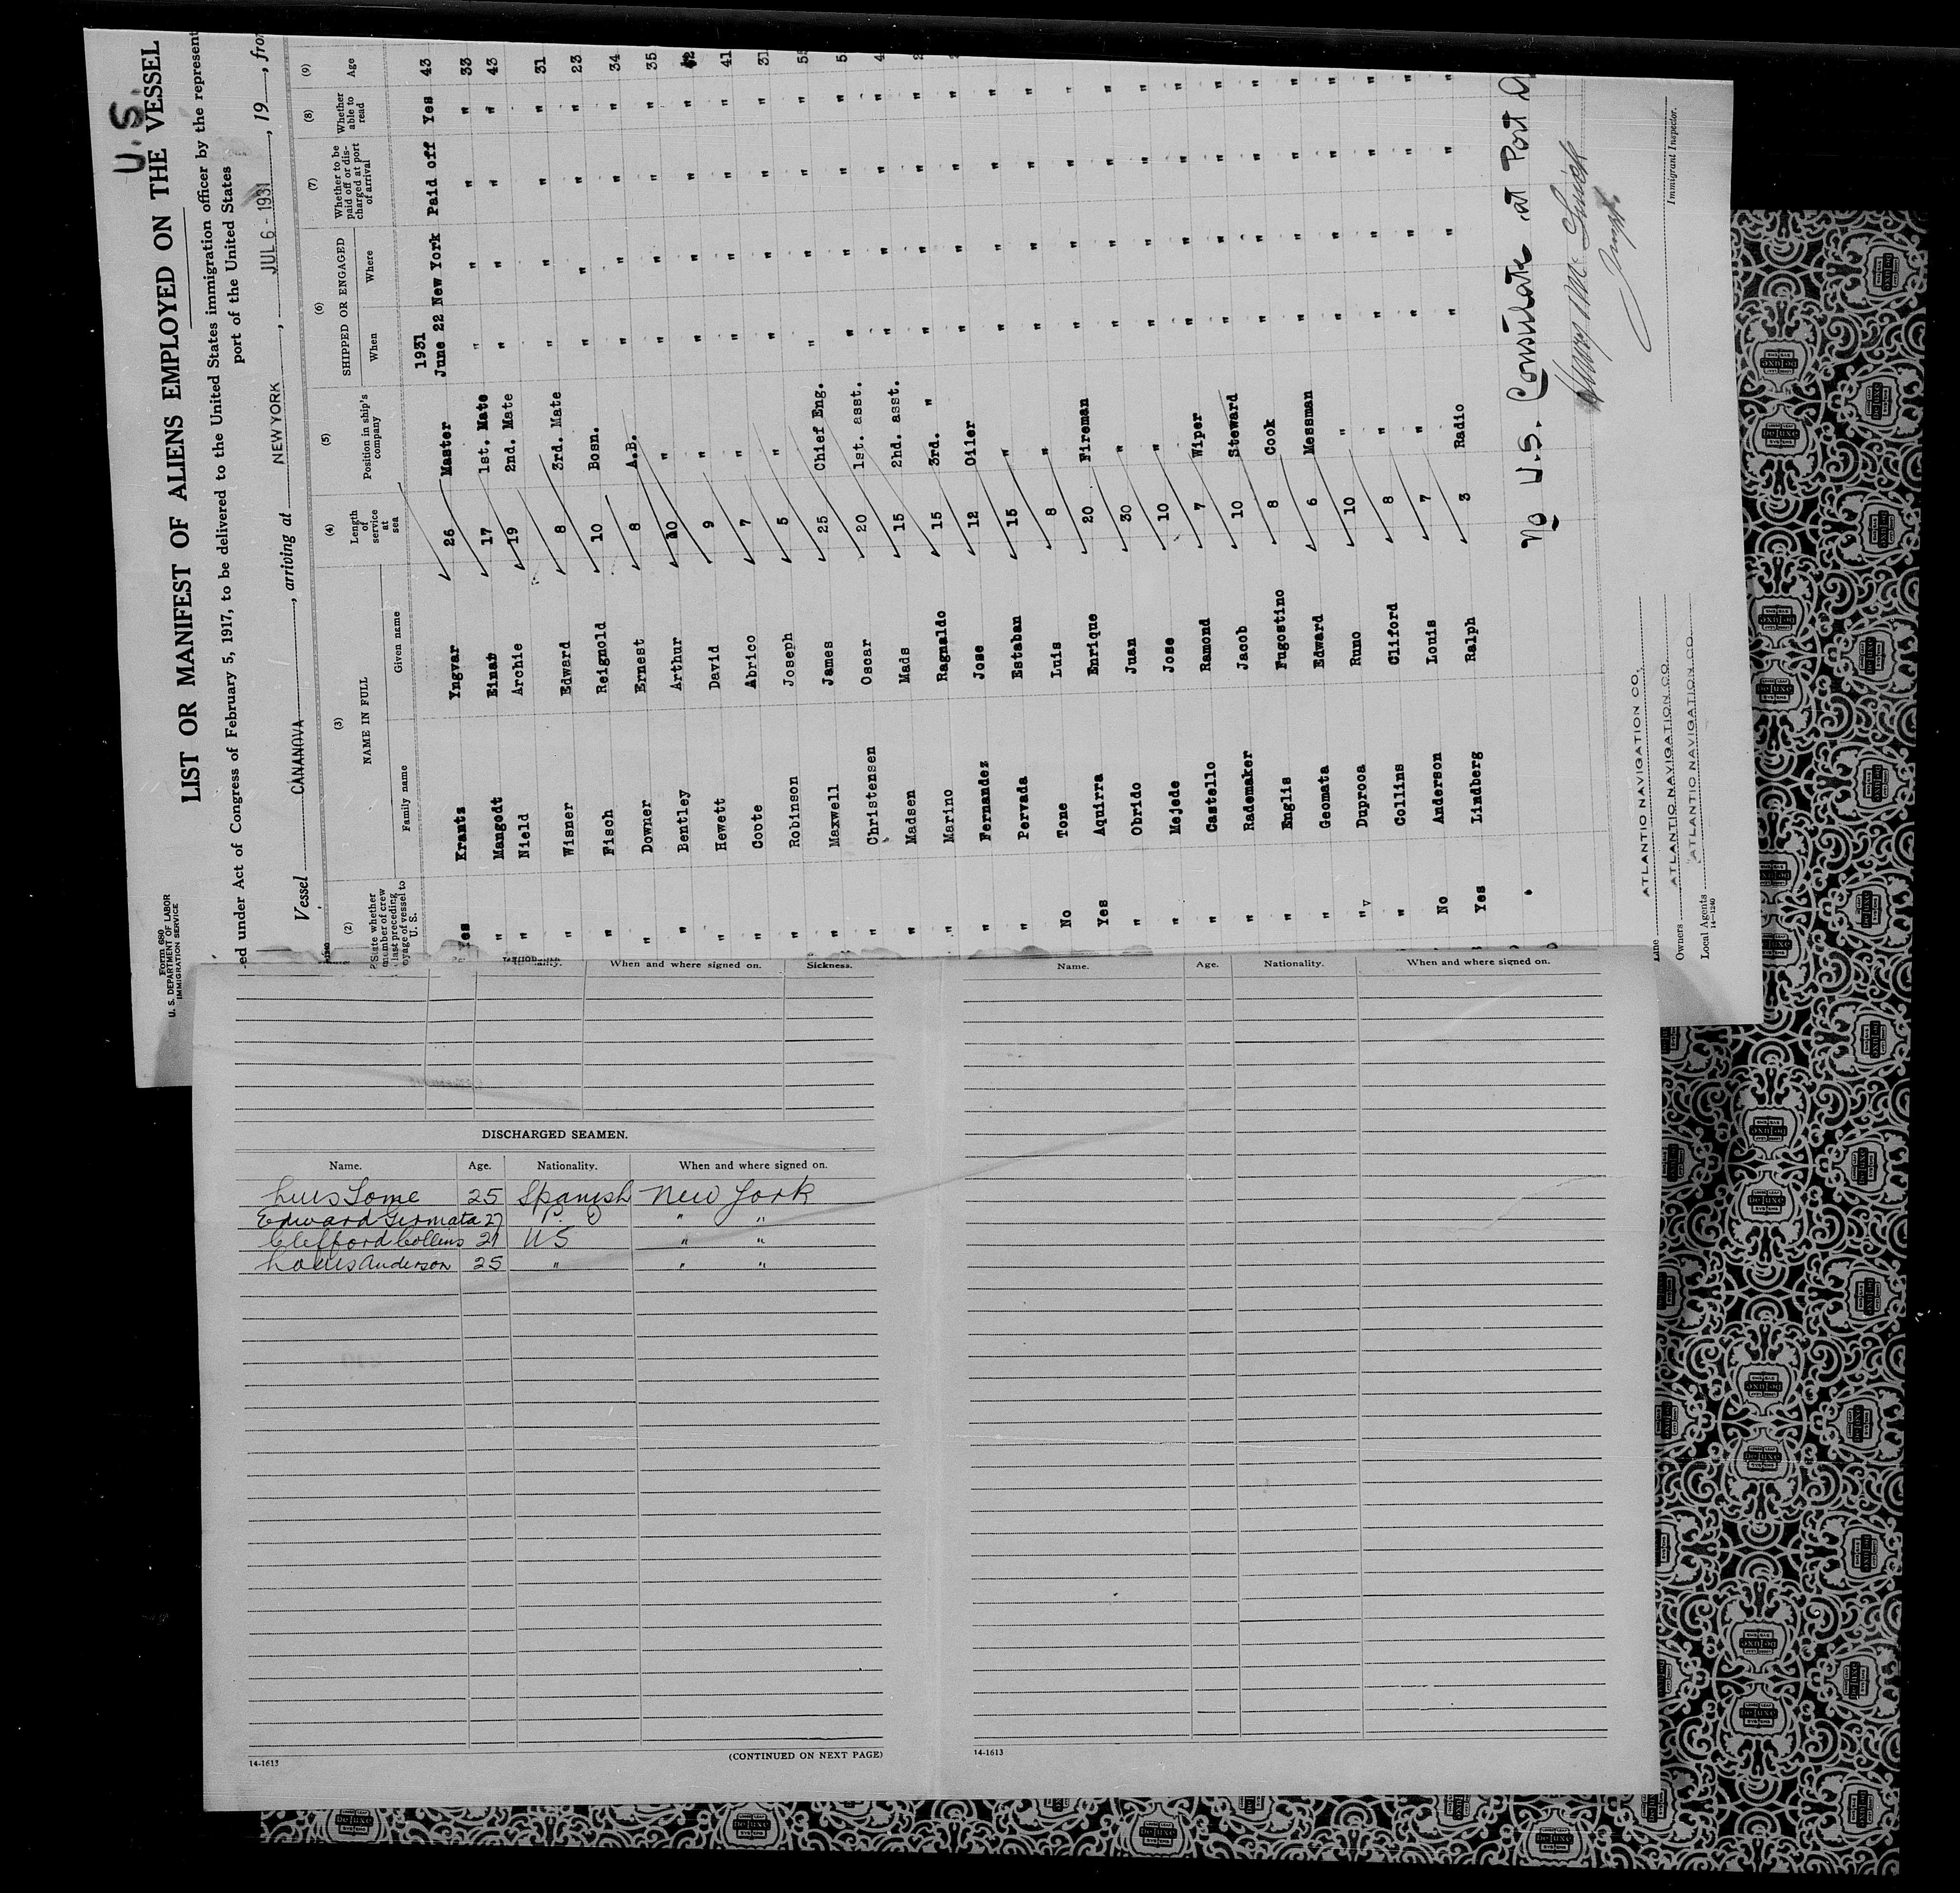 Form 680
U. S. DEPARTMENT OF LABOR
IMMIGRATION SERVICE
U.S.
LIST OR MANIFEST OF ALIENS EMPLOYED ON THE VESSEL
ed under Act of Congress of February 5, 1917, to be delivered to the United States immigration officer by the represent
port of the United States
Vessel CANANOVA, arriving at NEW YORK, JUL 6 - 1931, 19, from
(2) (3) (4) (5) (6) (7) (8) (9)
State whether member of crew last preceding voyage of vessel to U. S. NAME IN FULL Family name Given name Length of service at sea Position in ship's company SHIPPED OR ENGAGED When Where Whether to be paid off or discharged at port of arrival Whether able to read Age
1931
Yes Krantz Yngvar 26 Master June 22 New York Paid off Yes 43
" Mangodt Einar 17 1st. Mate " " " " 33
" Nield Archie 19 2nd. Mate " " " " 43
" Wisner Edward 8 3rd. Mate " " " " 31
" Fisch Reignold 10 Bosn. " " " " 23
" Downer Ernest 8 A.B. " " " " 34
" Bentley Arthur 10 " " " " " 35
" Hewett David 9 " " " " " 42
" Coote Abrico 7 " " " " " 41
" Robinson Joseph 5 " " " " " 31
" Maxwell James 25 Chief Eng. " " " " 55
" Christensen Oscar 20 1st. asst. " " " " 5
" Madsen Mads 15 2hd. asst. " " " " 4
" Marino Ragnaldo 15 3rd. " " " " " 2
" Fernandez Jose 12 Oiler " " " " 2
" Pervada Estaban 15 " " " " "
No Tone Luis 8 " " " " "
Yes Aquirra Enrique 20 Fireman " " " "
" Obrido Juan 30 " " " " "
" Mojede Jose 10 " " " " "
" Castello Ramond 7 Wiper " " " "
" Rademaker Jacob 10 Steward " " " "
" Englis Fugostino 8 Cook " " " "
" Geomata Edward 6 Messman " " " "
" Duproca Runo 10 " " " " "
" Collins Cliford 8 " " " " "
No Anderson Louis 7 " " " " "
Yes Lindberg Ralph 3 Radio " " " "
No U.S. Consulate at Port
Immigrant Inspector.
Line ATLANTIC NAVIGATION CO.
Owners ATLANTIC NAVIGATION CO
Local Agents ATLANTIC NAVIGATION CO
14—1240
Nationality. When and where signed on. Sickness.
DISCHARGED SEAMEN.
Name. Age. Nationality. When and where signed on.
Luis Tome 25 Spanish New York
Edward Germata 27 " "
Clifford Collins 21 US " "
Louis Anderson 25 " " "
14-1613
(CONTINUED ON NEXT PAGE)
Name. Age. Nationality. When and where signed on.
14-1613